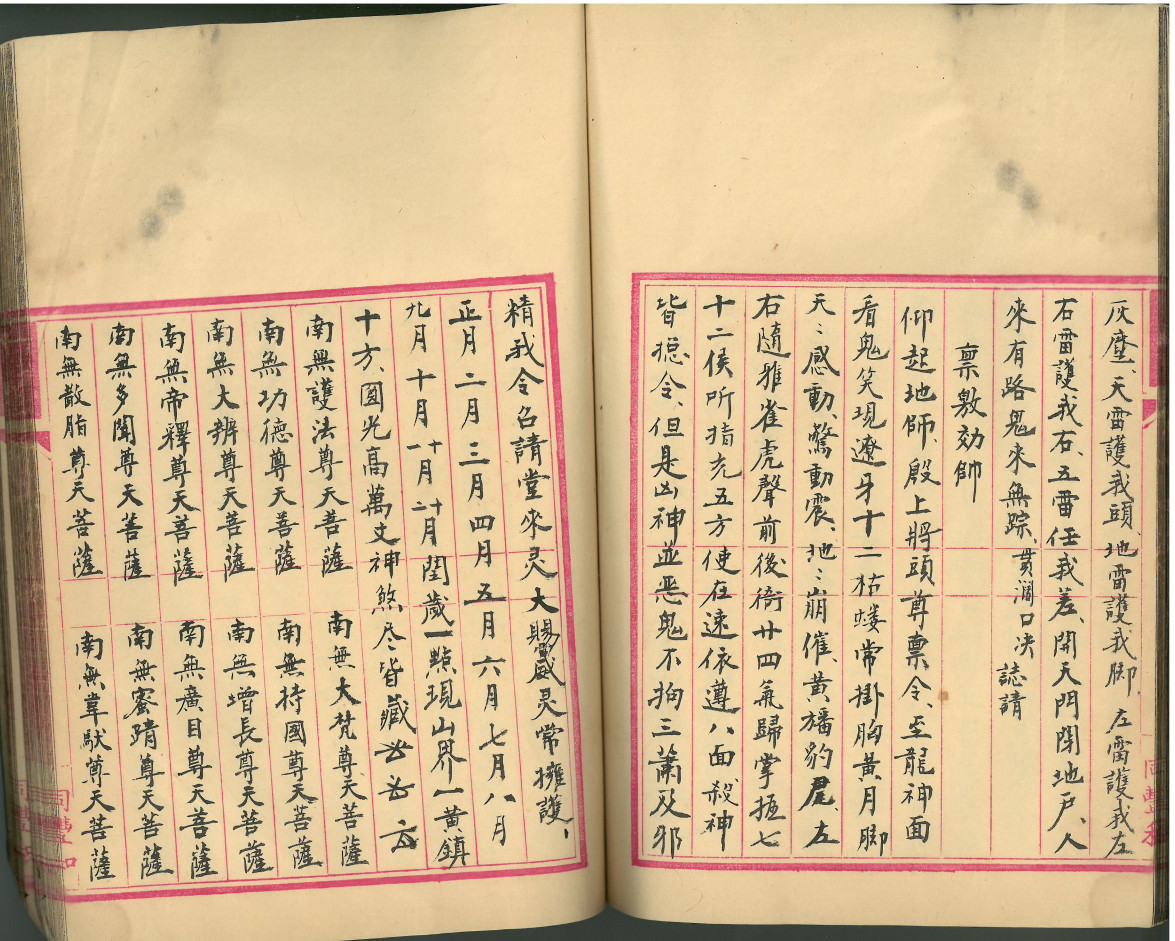 灰塵、天雷護我頭、地雷護我脚、左雷護我左
右雷護我右、五雷任我差、閉天門閉地戶、人
來有路鬼來無踪、口决 誌請
禀教効帥
仰起地師、殷上將頭尊禀令、至龍神面
看鬼笑現遼牙十二枯髅常掛胸黃月脚
天〻感動、驚動震、地〻崩催、黃旛豹君、左
右隨雅雀虎聲前後衛廿四氣歸掌握七
十二侯所指充五方使在速依遵八面殺神
皆摠令、但是凶神並恶鬼不拘三蕭及邪
精我令召請堂來灵大賜威灵常擁護、
正月二月三月四月五月六月七月八月
九月十月十一月十二月閏歲一點現山界一黃鎮
十方、圓光高萬丈神煞尽皆藏
南無護法尊天菩薩 南無大梵尊天菩薩
南無功德尊天菩薩 南無持國尊天菩薩
南無大辨尊天菩薩 南無增長尊天菩薩
南無帝釋尊天菩薩 南無廣目尊天菩薩
南無多聞尊天菩薩 南無蜜蹟尊天菩薩
南無散脂尊天菩薩 南無韋馱尊天菩薩
同豐和